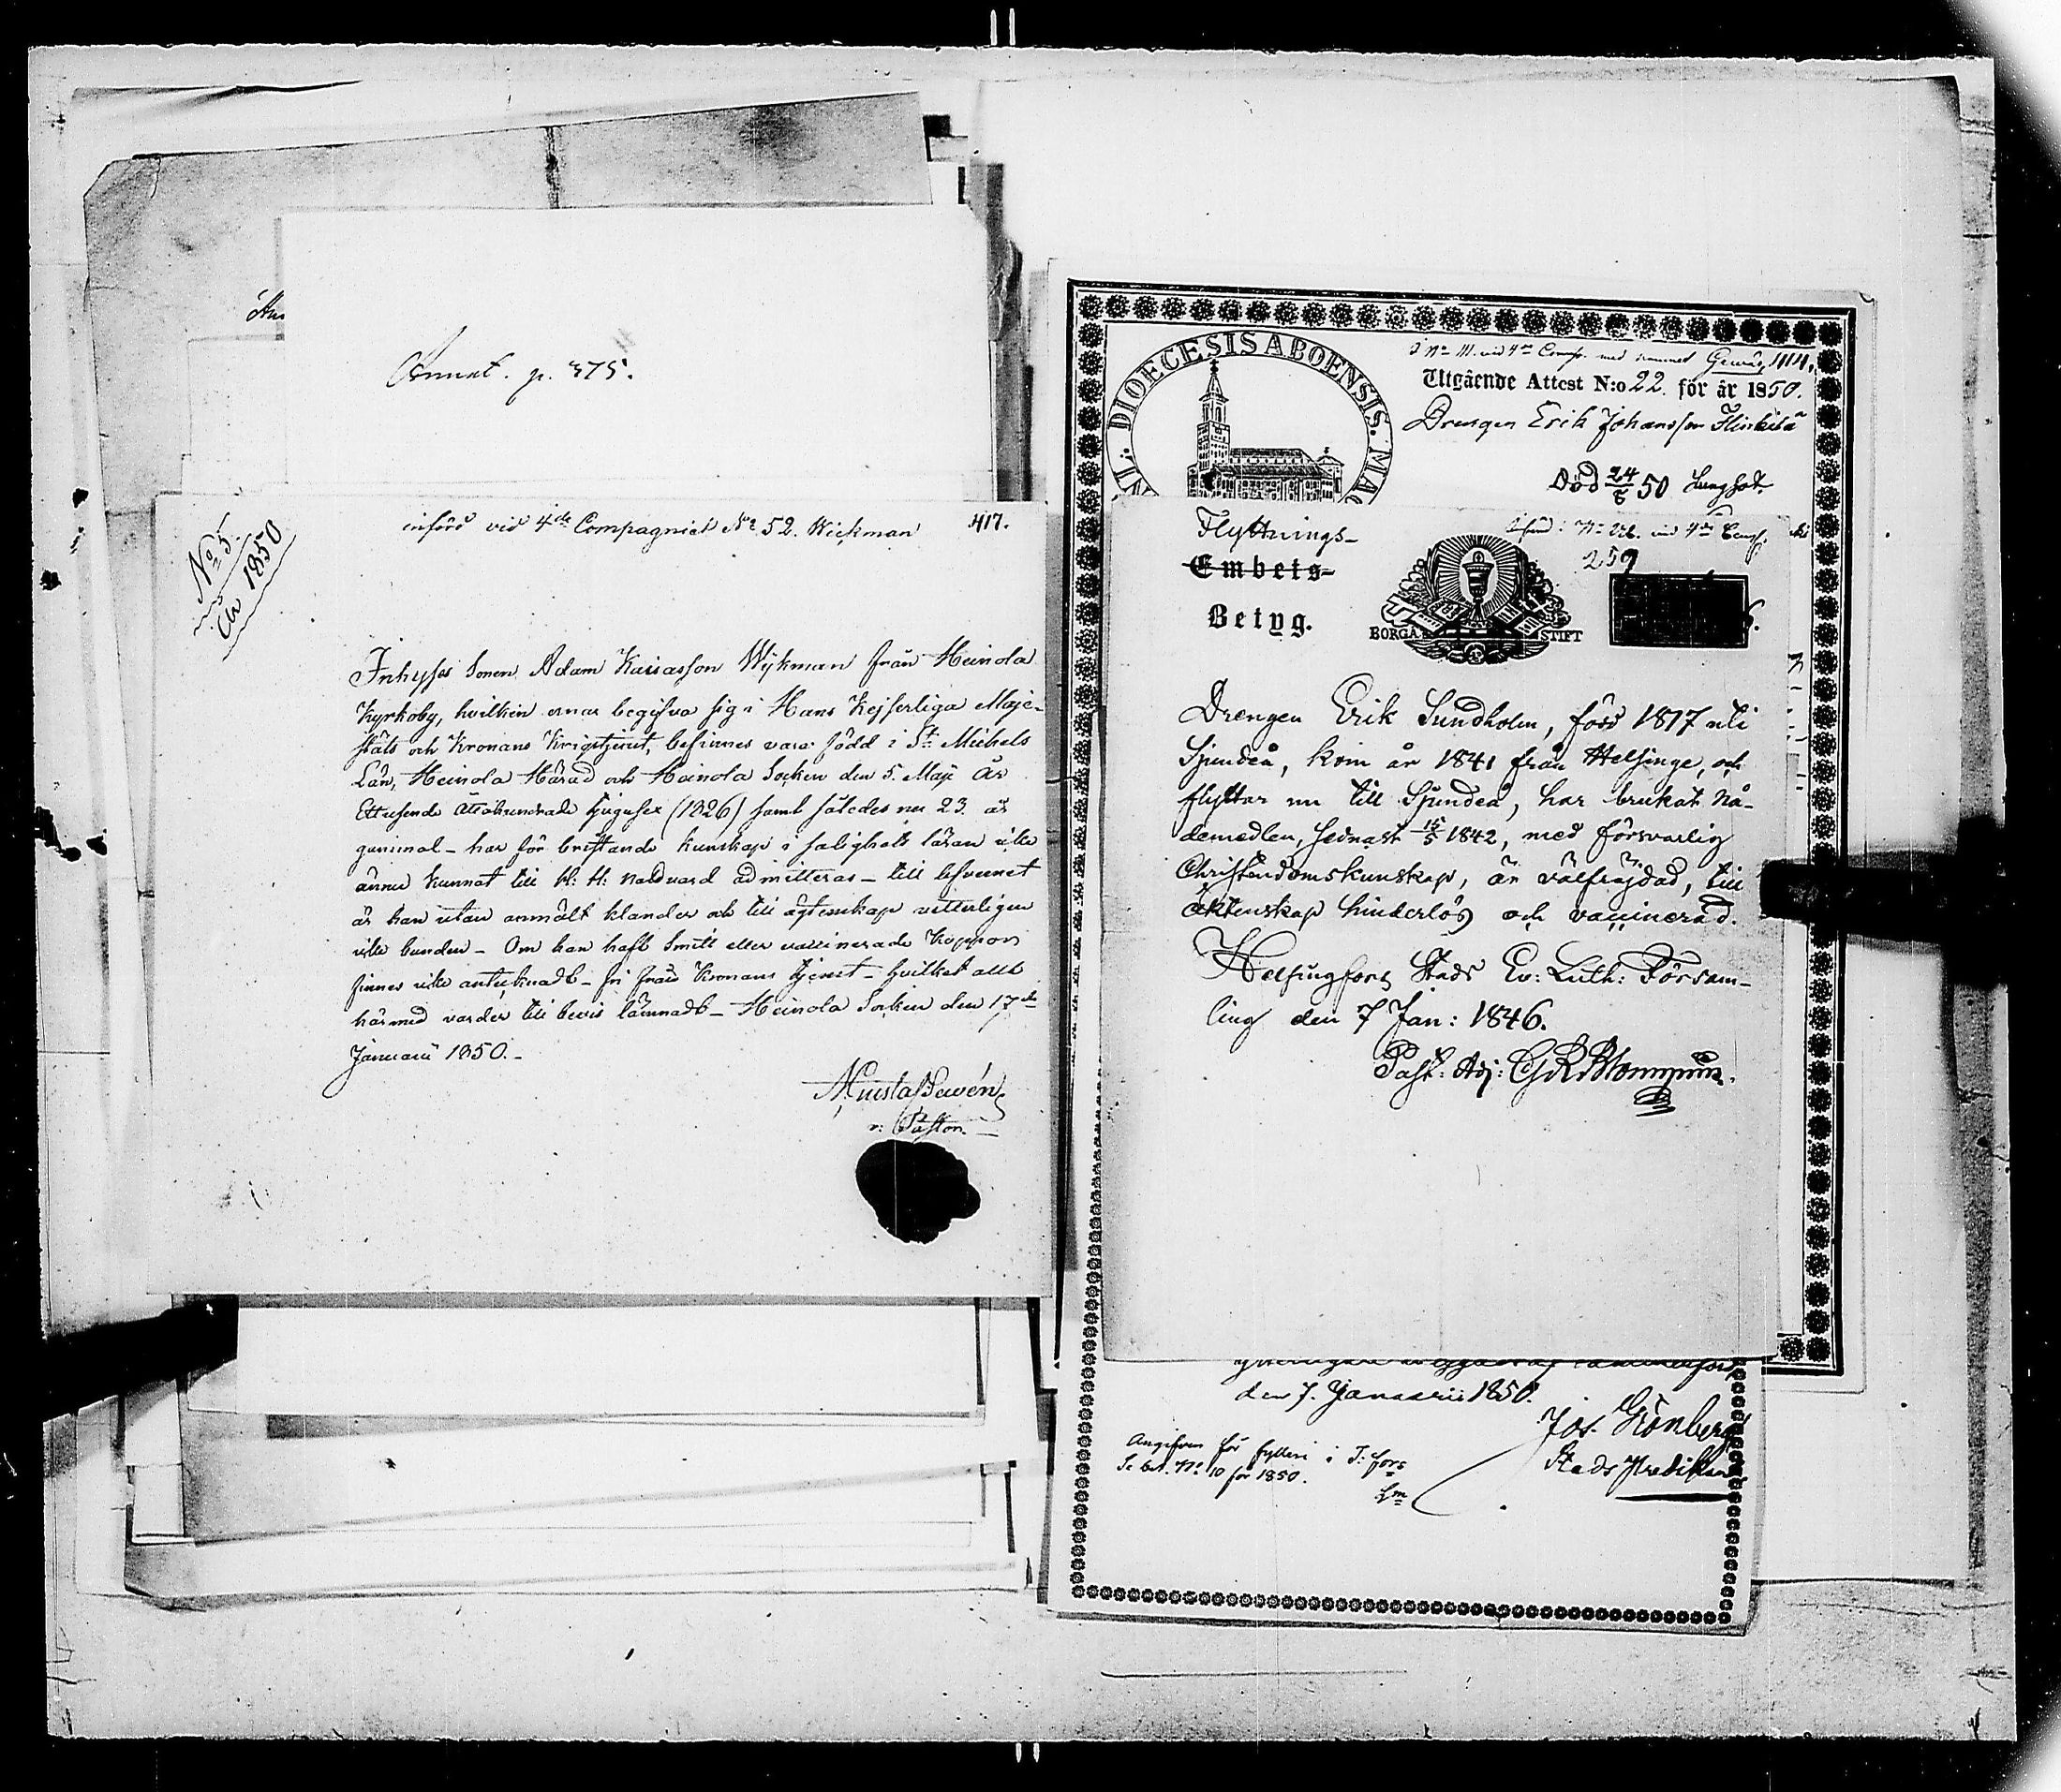 Annot. p. 375.
införd vid 4de Compagniet No 52. Wickman 417.
No 5.
År 1850
Inhyses Sonen Adam Kaiasson Wykman från Heinola
Kyrkoby, hvilken ernar begifva sig i Hans Kejserliga Maje-
stäts och Kronans Krigstjenst, befinnes vara född i St Michels
Län, Heinola Härad och Heinola Socken den 5. Maji År
Ettusende Åttahundrade tjugusex (1826) samt således nu 23. år
gammal - har för bristande kunskap i salighets läran icke
ännu kunnat till H: H: Nattvard admitteras - till lefvernet
är han utan anmält klander och till ägtenskap vetterligen
icke bunden - Om han haft Smitt eller vaccinerade Koppor
finnes icke antecknadt - fri från Kronans tjenst - hvilket allt
härmed varder till bevis lämnadt - Heinola Socken den 17de
Januarii 1850.-
v: Pastor.
DIOECESIS ABOENSIS. MAG
med nummer
Utgående Attest N:o 22. för år 1850.
Drengen Erik Johansson
Död 24/5 50 Lungsot.
Flyttnings-
Embets-
Betyg.
införd: No vid 4de Comp.
259
BORGÅ STIFT
Drengen Erik Sundholm, född 1817 uti
Sjundeå, kom år 1841 från Helsinge, och
flyttar nu till Sjundeå, har brukat Nå-
demedlen, sednast 15/5 1842, med försvarlig
Christendomskunskap, är välfrejdad, till
äktenskap hinderlös och vaccinerad.
Helsingfors Stads Ev: Luth: Försam-
ling den 7 Jan: 1846.
Past: Adj:
den 7. Januarii 1850.
Jos. Grönberg
Stads Predikant
Angifven för fylleri i T:fors
Se bet. No 10 för 1850.